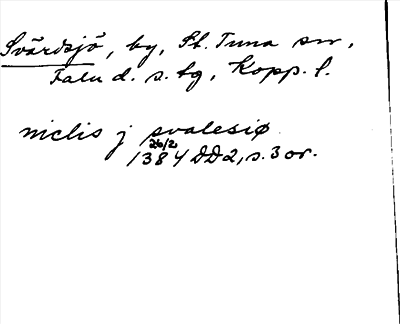 Svärdsjö, by, St. Tuna sn,
Falu d. s. tg, Kopp. l.
niclis j svalesiø
26/2
1384 DD2, s. 3 or.